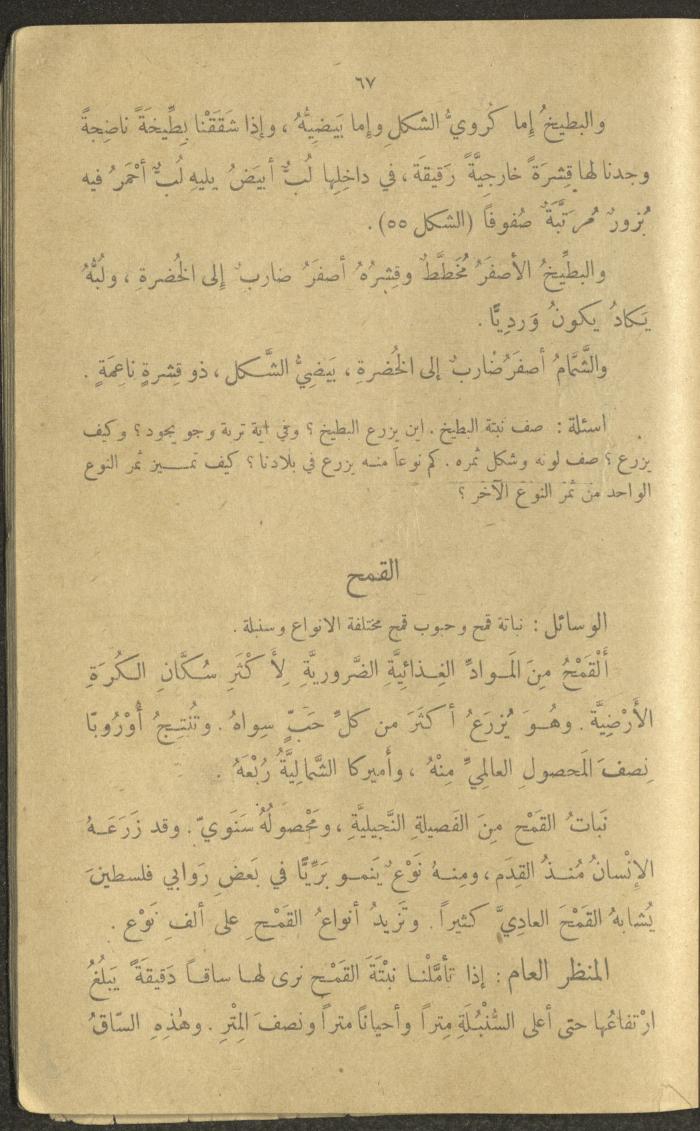 ٦٧
والبطيخُ إما كُرويُّ الشكلِ وإما بَيضِيُّهُ ، وإذا شَقَقْنا بِطِّيخَةً ناضِجةً
وجدنا لها قِشرَةً خارجيَّةً رَقيقَة ، في داخِلِها لُبٌّ أبيَضُ يليهِ لُبٌّ أحْمَرُ فيه
بُزورٌ مُرتَّبَةٌ صُفوفًا (الشكل ٥٥) .
والبطِّيخُ الأصفَرُ مُخَطَّطٌ وقِشرُهُ أصفَرُ ضاربٌ إلى الخُضرةِ ، ولُبُّهُ
يَكادُ يكونُ وَردِيًّا .
والشَّمَّامُ أصفَرُ ضاربٌ إلى الخُضرةِ ، بَيَضِيُّ الشَّكل ، ذو قِشرةٍ ناعِمَةٍ .
اسئلة : صف نبتة البطيخ . اين يزرع البطيخ ؟ وفي اية تربة وجو يجود ؟ وكيف
يزرع ؟ صف لونه وشكل ثمره . كم نوعاً منه يزرع في بلادنا ؟ كيف تميز ثمر النوع
الواحد من ثمر النوع الآخر ؟
القمح
الوسائل : نباتة قمح وحبوب قمح مختلفة الانواع وسنبلة .
أَلْقَمْحُ مِنَ المَوادِّ الغِذائِيَّةِ الضَّروريَّةِ لِأَكْثَرِ سُكَّانِ الكُرَةِ
الأَرْضِيَّة . وهُوَ يُزرَعُ أكثَرَ من كلِّ حَبٍّ سِواهُ . وتُنتِجُ أُوْرُوبّا
نِصفَ المَحصولِ العالمِيِّ مِنْهُ ، وأَميركا الشَّمالِيَّةُ رُبْعَهُ .
نَباتُ القَمْحِ مِنَ الفَصيلةِ النَّجيليَّةِ ، ومَحْصولُهُ سَنَويّ . وقد زَرَعَهُ
الإنْسانُ مُنذُ القِدَم ، ومِنهُ نَوْعٌ يَنمو بَرِّيًّا في بَعضِ رَوابي فلسطينَ
يُشابهُ القَمْحَ العادِيَّ كثيراً . وتَزيدُ أنواعُ القَمْحِ على ألفِ نَوْع .
المنظر العام : إذا تأَمَّلْنا نبْتَةَ القَمْحِ نرى لها ساقاً دَقيقَةً يَبلُغُ
ارْتفاعُها حتى أعلى السُّنْبُلَةِ مِتراً وأحيانًا متراً ونصفَ المِتْرِ . وهٰذِهِ السّاقُ